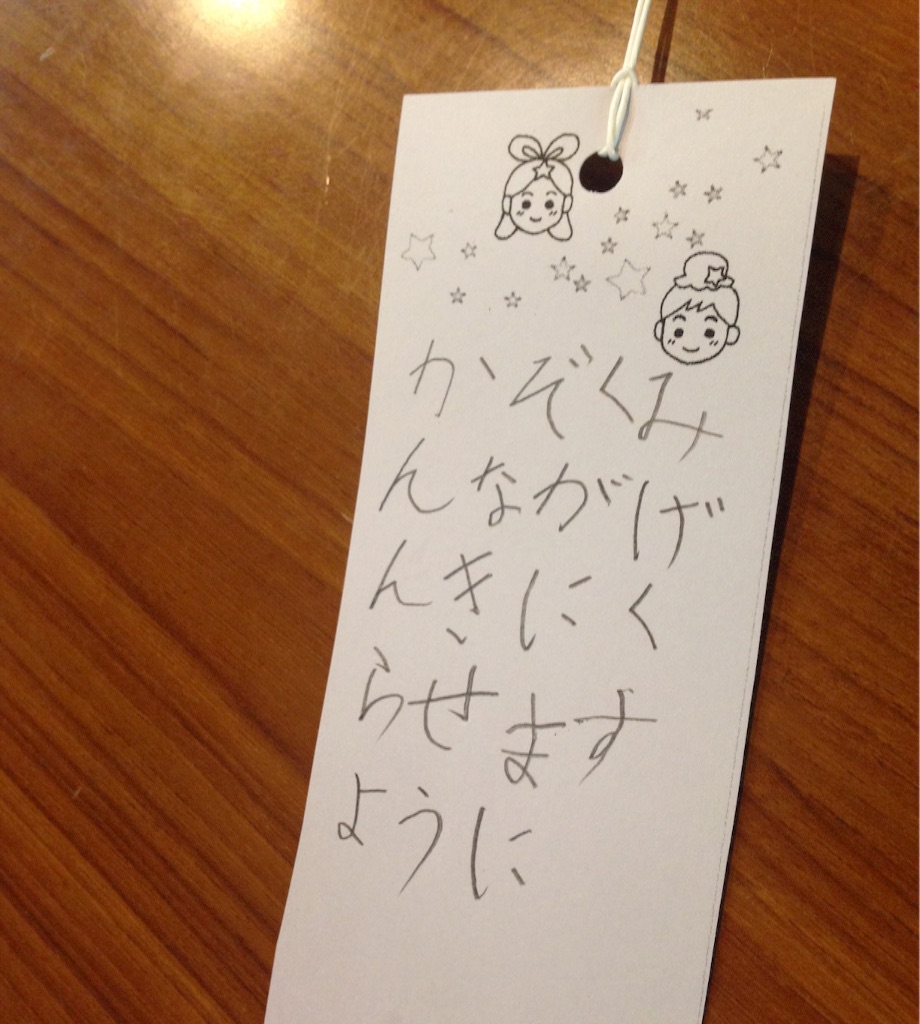 かぞくみ
んながげ
んきにく
らせます
ように